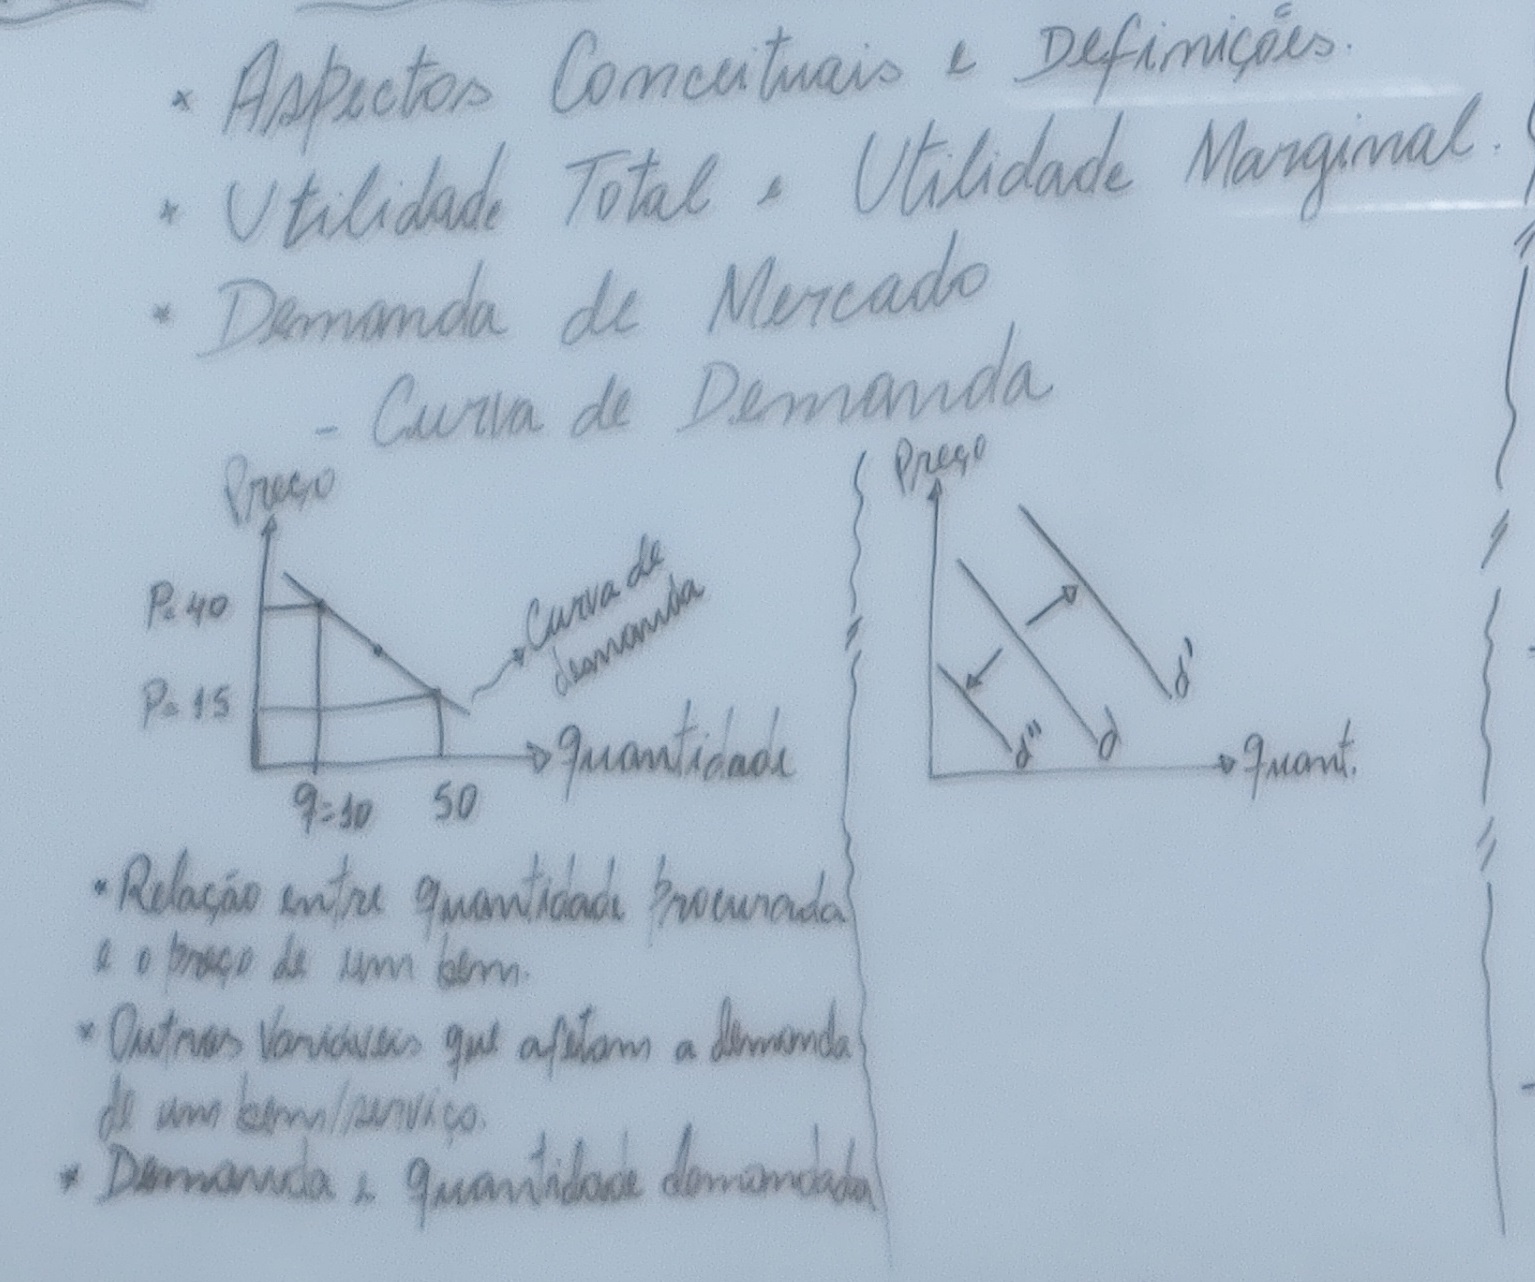 * Aspectos Conceituais e Definições.
* Utilidade Total e Utilidade Marginal.
* Demanda de Mercado
- Curva de Demanda
Preço
P= 40
P= 15
Curva de
demanda
quantidade
q=10 50
Preço
d'
d
d"
quant.
* Relação entre quantidade procurada
e o preço de um bem.
* Outras Variáveis que afetam a demanda
de um bem/serviço.
* Demanda e quantidade demandada